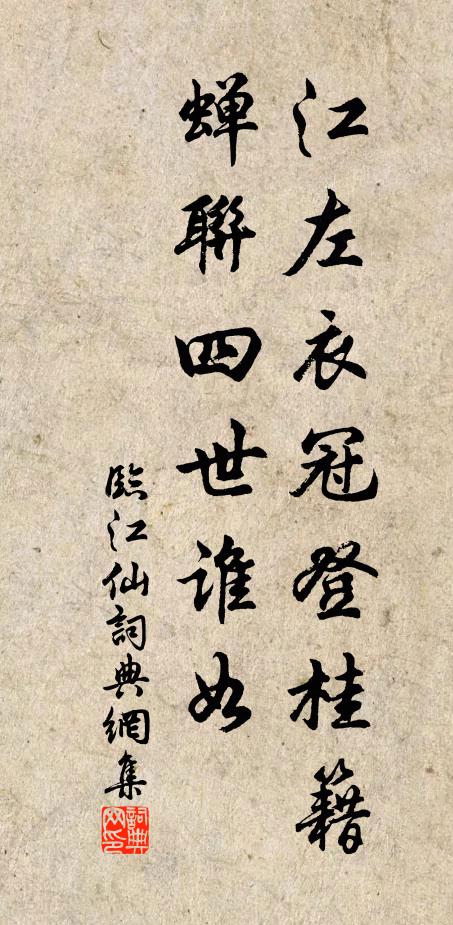 江左衣冠登桂籍
蟬聯四世誰如
臨江仙詞典網集
詞典
网印